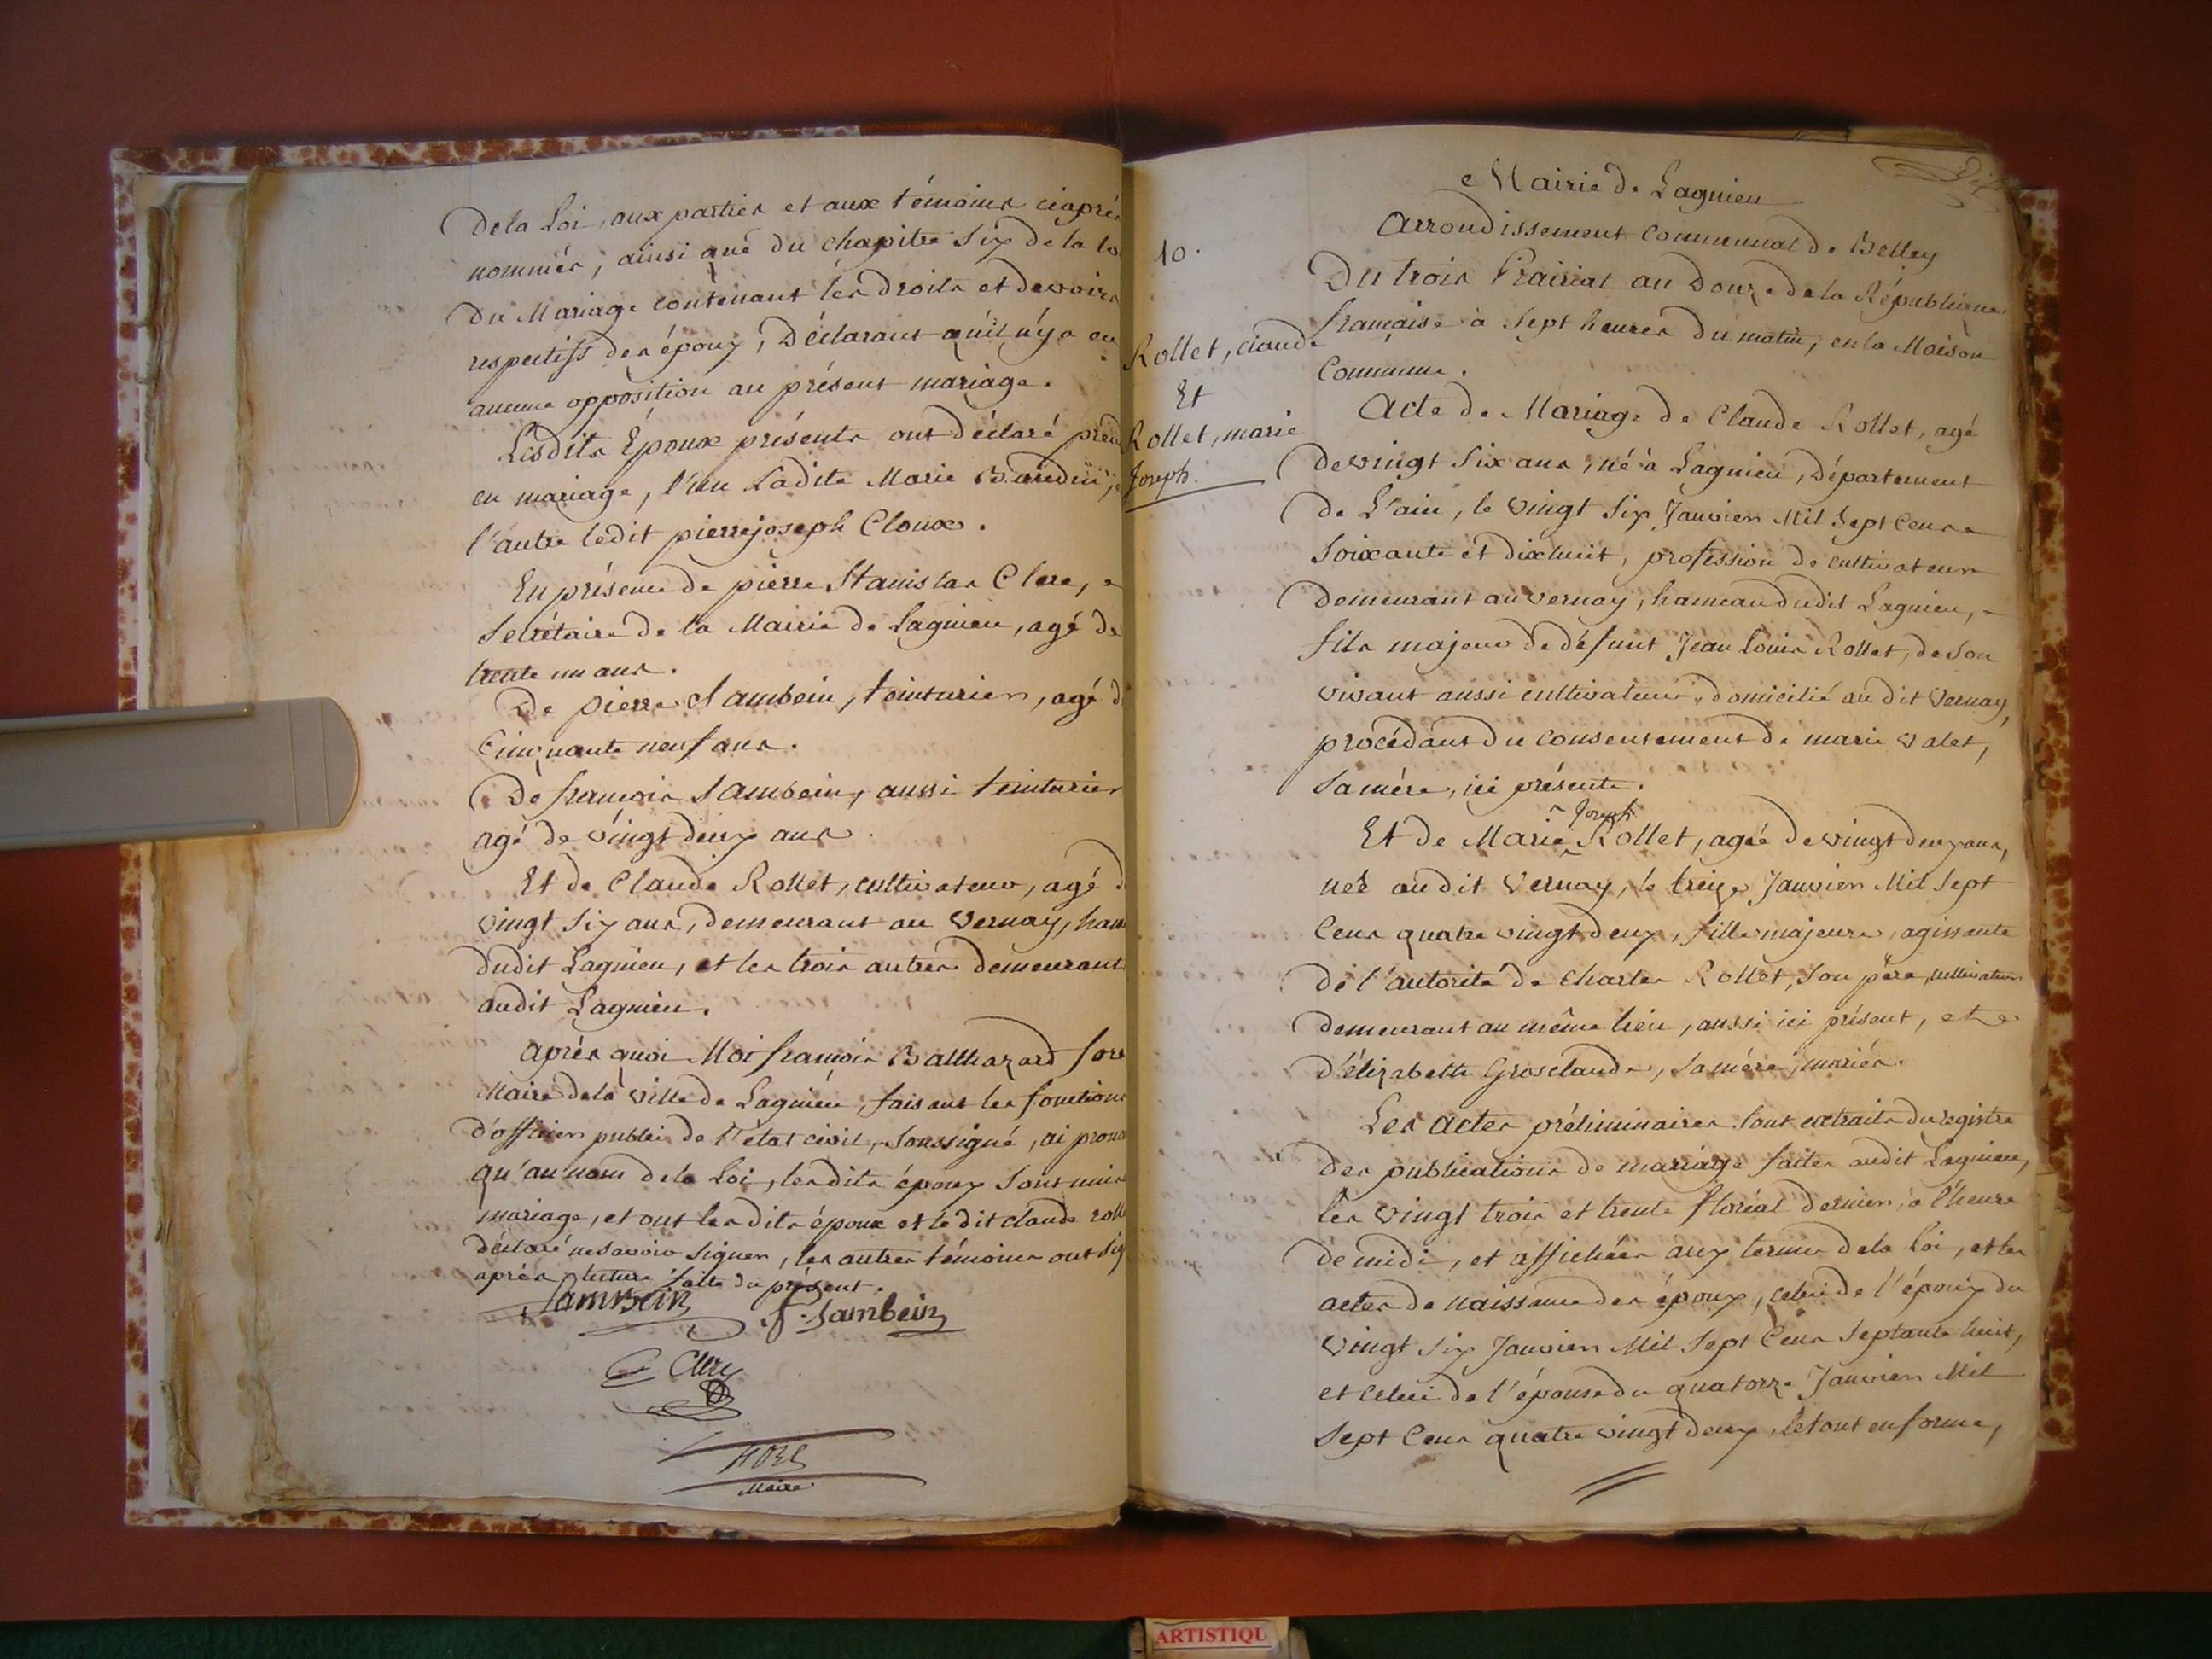 De la Loi, aux parties et aux témoins ci après
nommés, ainsi que du chapitre Six de la lo
Du Mariage contenant les droits et devoirs
respectifs des époux, Déclarant qu'il n'y a eu
aucune opposition au présent mariage.
Lesdits Époux présents ont déclaré prend
en mariage, l'un Ladite Marie Bardin,
l'autre ledit pierre joseph Cloux.
En présence de pierre Stanislas Clerc,
Secrétaire de la Mairie de Lagnieu, agé de
trente un ans.
De pierre Sambein, teinturier, agé d
Cinquante neuf ans.
De françois Sambein, aussi teinturier
agé de vingt deux ans.
Et de Claude Rollet, cultivateur, agé d
vingt six ans, demeurant au Vernay, ham
dudit Lagnieu, et les trois autres demeurant
audit Lagnieu.
après quoi Moi françois Balthazard fore
Maire de la Ville de Lagnieu, faisant les fonctions
d'officier public de l'état civil, Soussigné, ai prono
qu'au nom de la Loi, lesdits époux Sont unis
mariage, et ont lesdits époux et ledit claude roll
déclaré ne savoir signer, les autres témoins ont sig
après lecture faite du présent.
Sambein f. Sambein
Clerc
Maire
Mairie de Lagnieu
Arrondissement Communal de Belley
10.
Du trois Prairial an Douze de la République
française à Sept heures du matin, en la Maison
Commune.
Rollet, claude
Et
Rollet, marie
Joseph.
Acte de Mariage de Claude Rollet, agé
de vingt Six ans, né à Lagnieu, Département
de L'ain, le vingt Six Janvier Mil Sept Cens
Soixante et dixhuit, profession de cultivateur
demeurant au vernay, hameau dudit Lagnieu,
fils majeur de défunt Jean Louis Rollet, de Son
vivant aussi cultivateur, domicilié audit Vernay,
procédant du consentement de marie valet,
Sa mère, ici présente.
Joseph
Et de Marie Rollet, agée de vingt deux ans,
née audit Vernay, le treize Janvier Mil Sept
Cens quatre vingt deux, fille majeure, agissante
de l'autorité de Charles Rollet, Son père, cultivateur
demeurant au même lieu, aussi ici présent, et
d'élizabeth Grosclaude, Sa mère, mariés.
Les actes préliminaires Sont extraits du registre
des publications de mariage faites audit Lagnieu,
les vingt trois et trente floréal dernier, à l'heure
de midi, et affichées aux termes de la Loi, et les
actes de naissance des époux, celui de l'époux du
vingt Six Janvier Mil Sept Cens Septante huit,
et celui de l'épouse du quatorze Janvier Mil
Sept Cens quatre vingt deux, le tout en forme,
ARTISTIQU